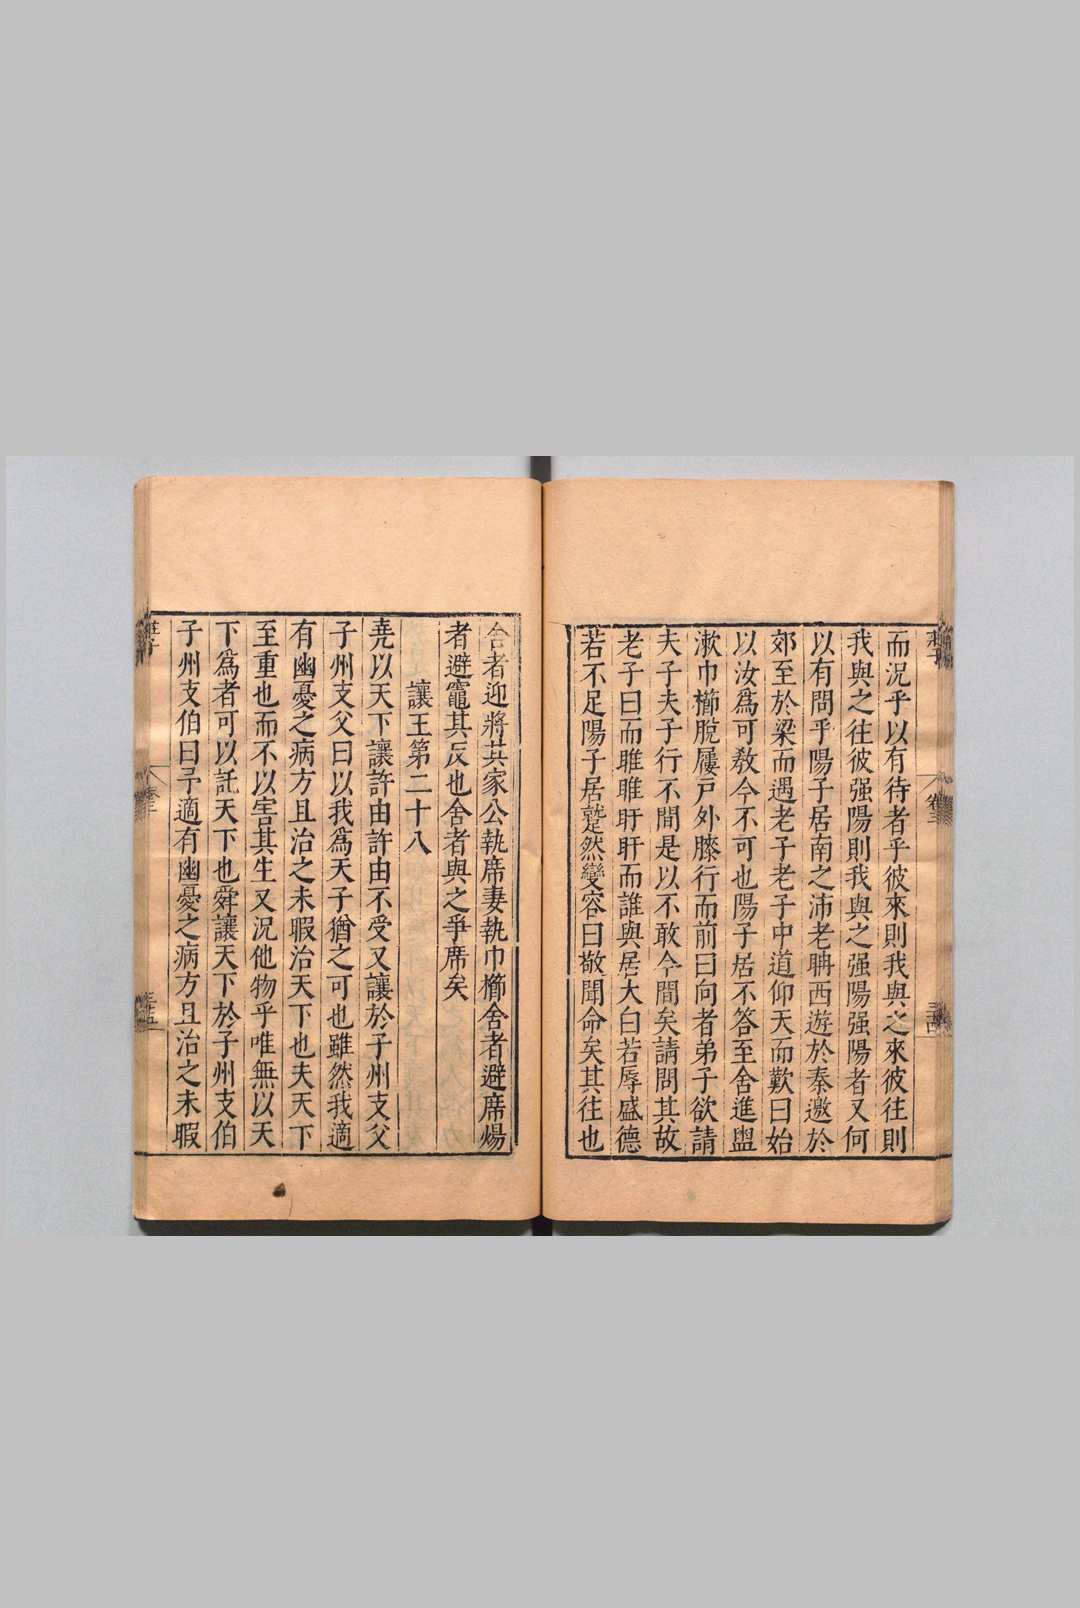 而況乎以有待者乎彼來則我與之來彼往則
我與之往彼强陽則我與之强陽强陽者又何
以有問乎陽子居南之沛老聃西遊於秦邀於
郊至於梁而遇老子老子中道仰天而歎曰始
以汝爲可敎今不可也陽子居不答至舍進盥
漱巾櫛脫屨戶外膝行而前曰向者弟子欲請
夫子夫子行不間是以不敢今間矣請問其故
老子曰而睢睢盱盱而誰與居大白若辱盛德
若不足陽子居蹵然變容曰敬聞命矣其往也
舍者迎將其家公執席妻執巾櫛舍者避席煬
者避竈其反也舍者與之爭席矣
讓王第二十八
堯以天下讓許由許由不受又讓於子州支父
子州支父曰以我爲天子猶之可也雖然我適
有幽憂之病方且治之未暇治天下也夫天下
至重也而不以害其生又況他物乎唯無以天
下爲者可以託天下也舜讓天下於子州支伯
子州支伯曰予適有幽憂之病方且治之未暇